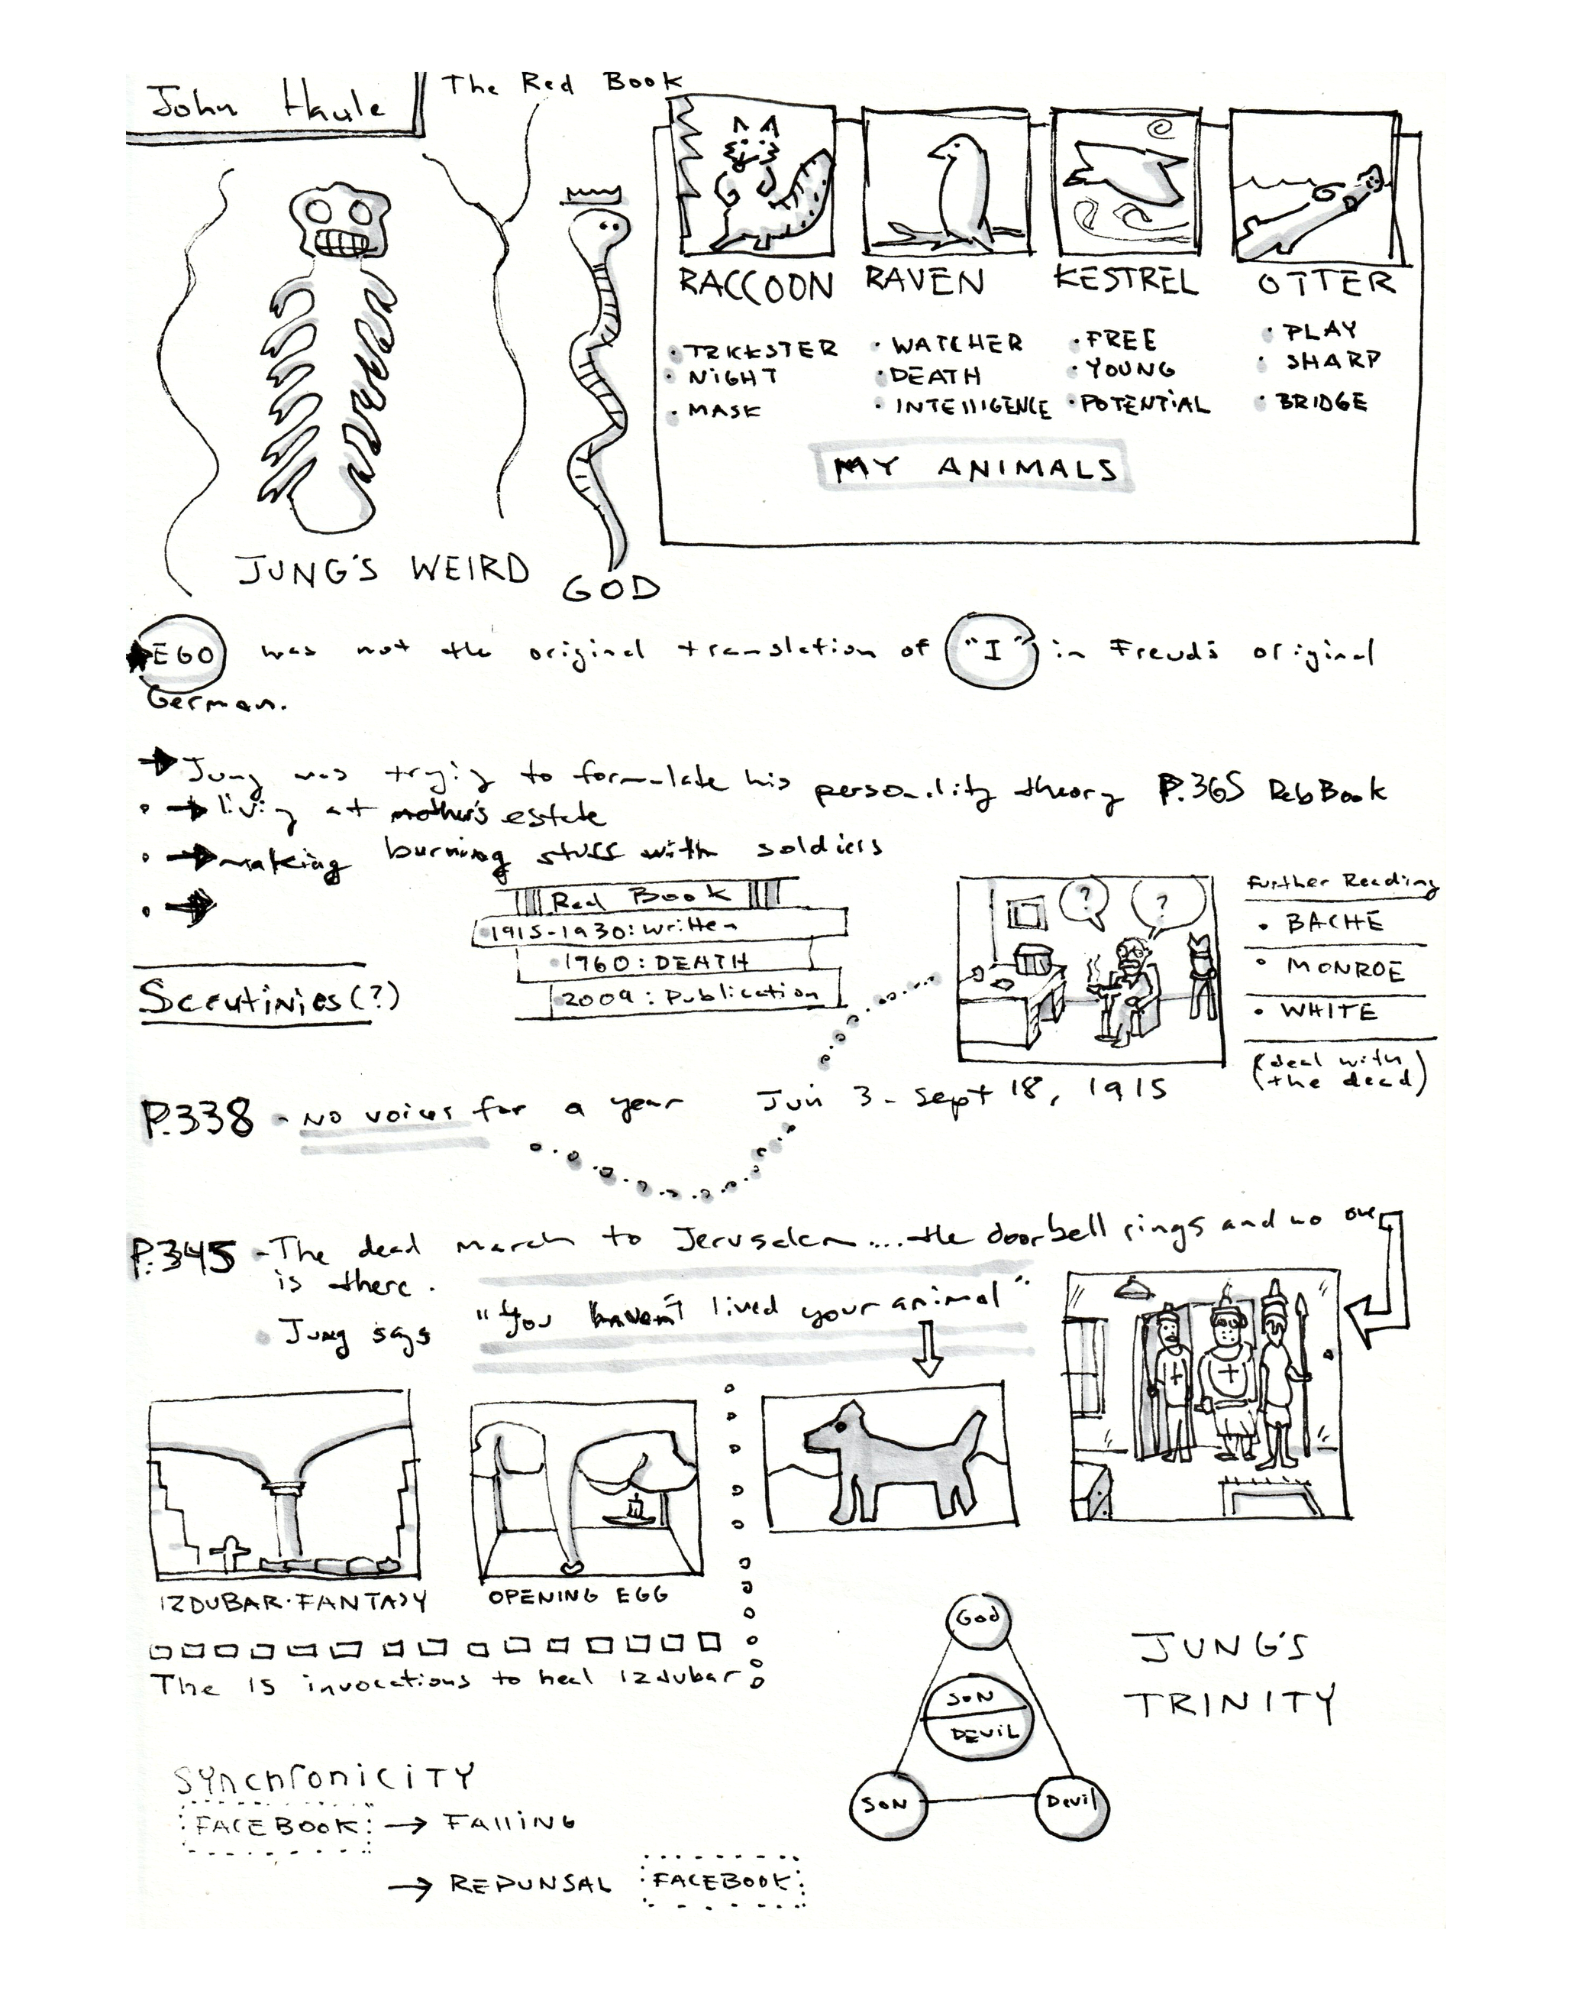 John Haule
The Red Book
RACCOON
RAVEN
KESTREL
OTTER
• TRICKSTER
• NIGHT
• MASK
• WATCHER
• DEATH
• INTELLIGENCE
• FREE
• YOUNG
• POTENTIAL
• PLAY
• SHARP
• BRIDGE
MY ANIMALS
JUNG'S WEIRD
GOD
EGO was not the original translation of "I" in Freud's original
German.
Jung was trying to formulate his personality theory P.365 Red Book
living at mother's estate
making burning stuff with soldiers
Red Book
1915-1930: written
1960: DEATH
2009: Publication
? ?
Further Reading
• BACHE
• MONROE
• WHITE
(deal with
the dead)
Scrutinies (?)
P.338 - NO voices for a year Jun 3 - Sept 18, 1915
P.345 - The dead march to Jerusalem....the doorbell rings and no one
is there.
• Jung says "You haven't lived your animal"
IZDUBAR·FANTASY
OPENING EGG
The 15 invocations to heal izdubar
God
SON
DEVIL
SON
Devil
JUNG'S
TRINITY
SYnchronicITY
FACEBOOK → FAlliNG
→ REPUNSAL FACEBOOK